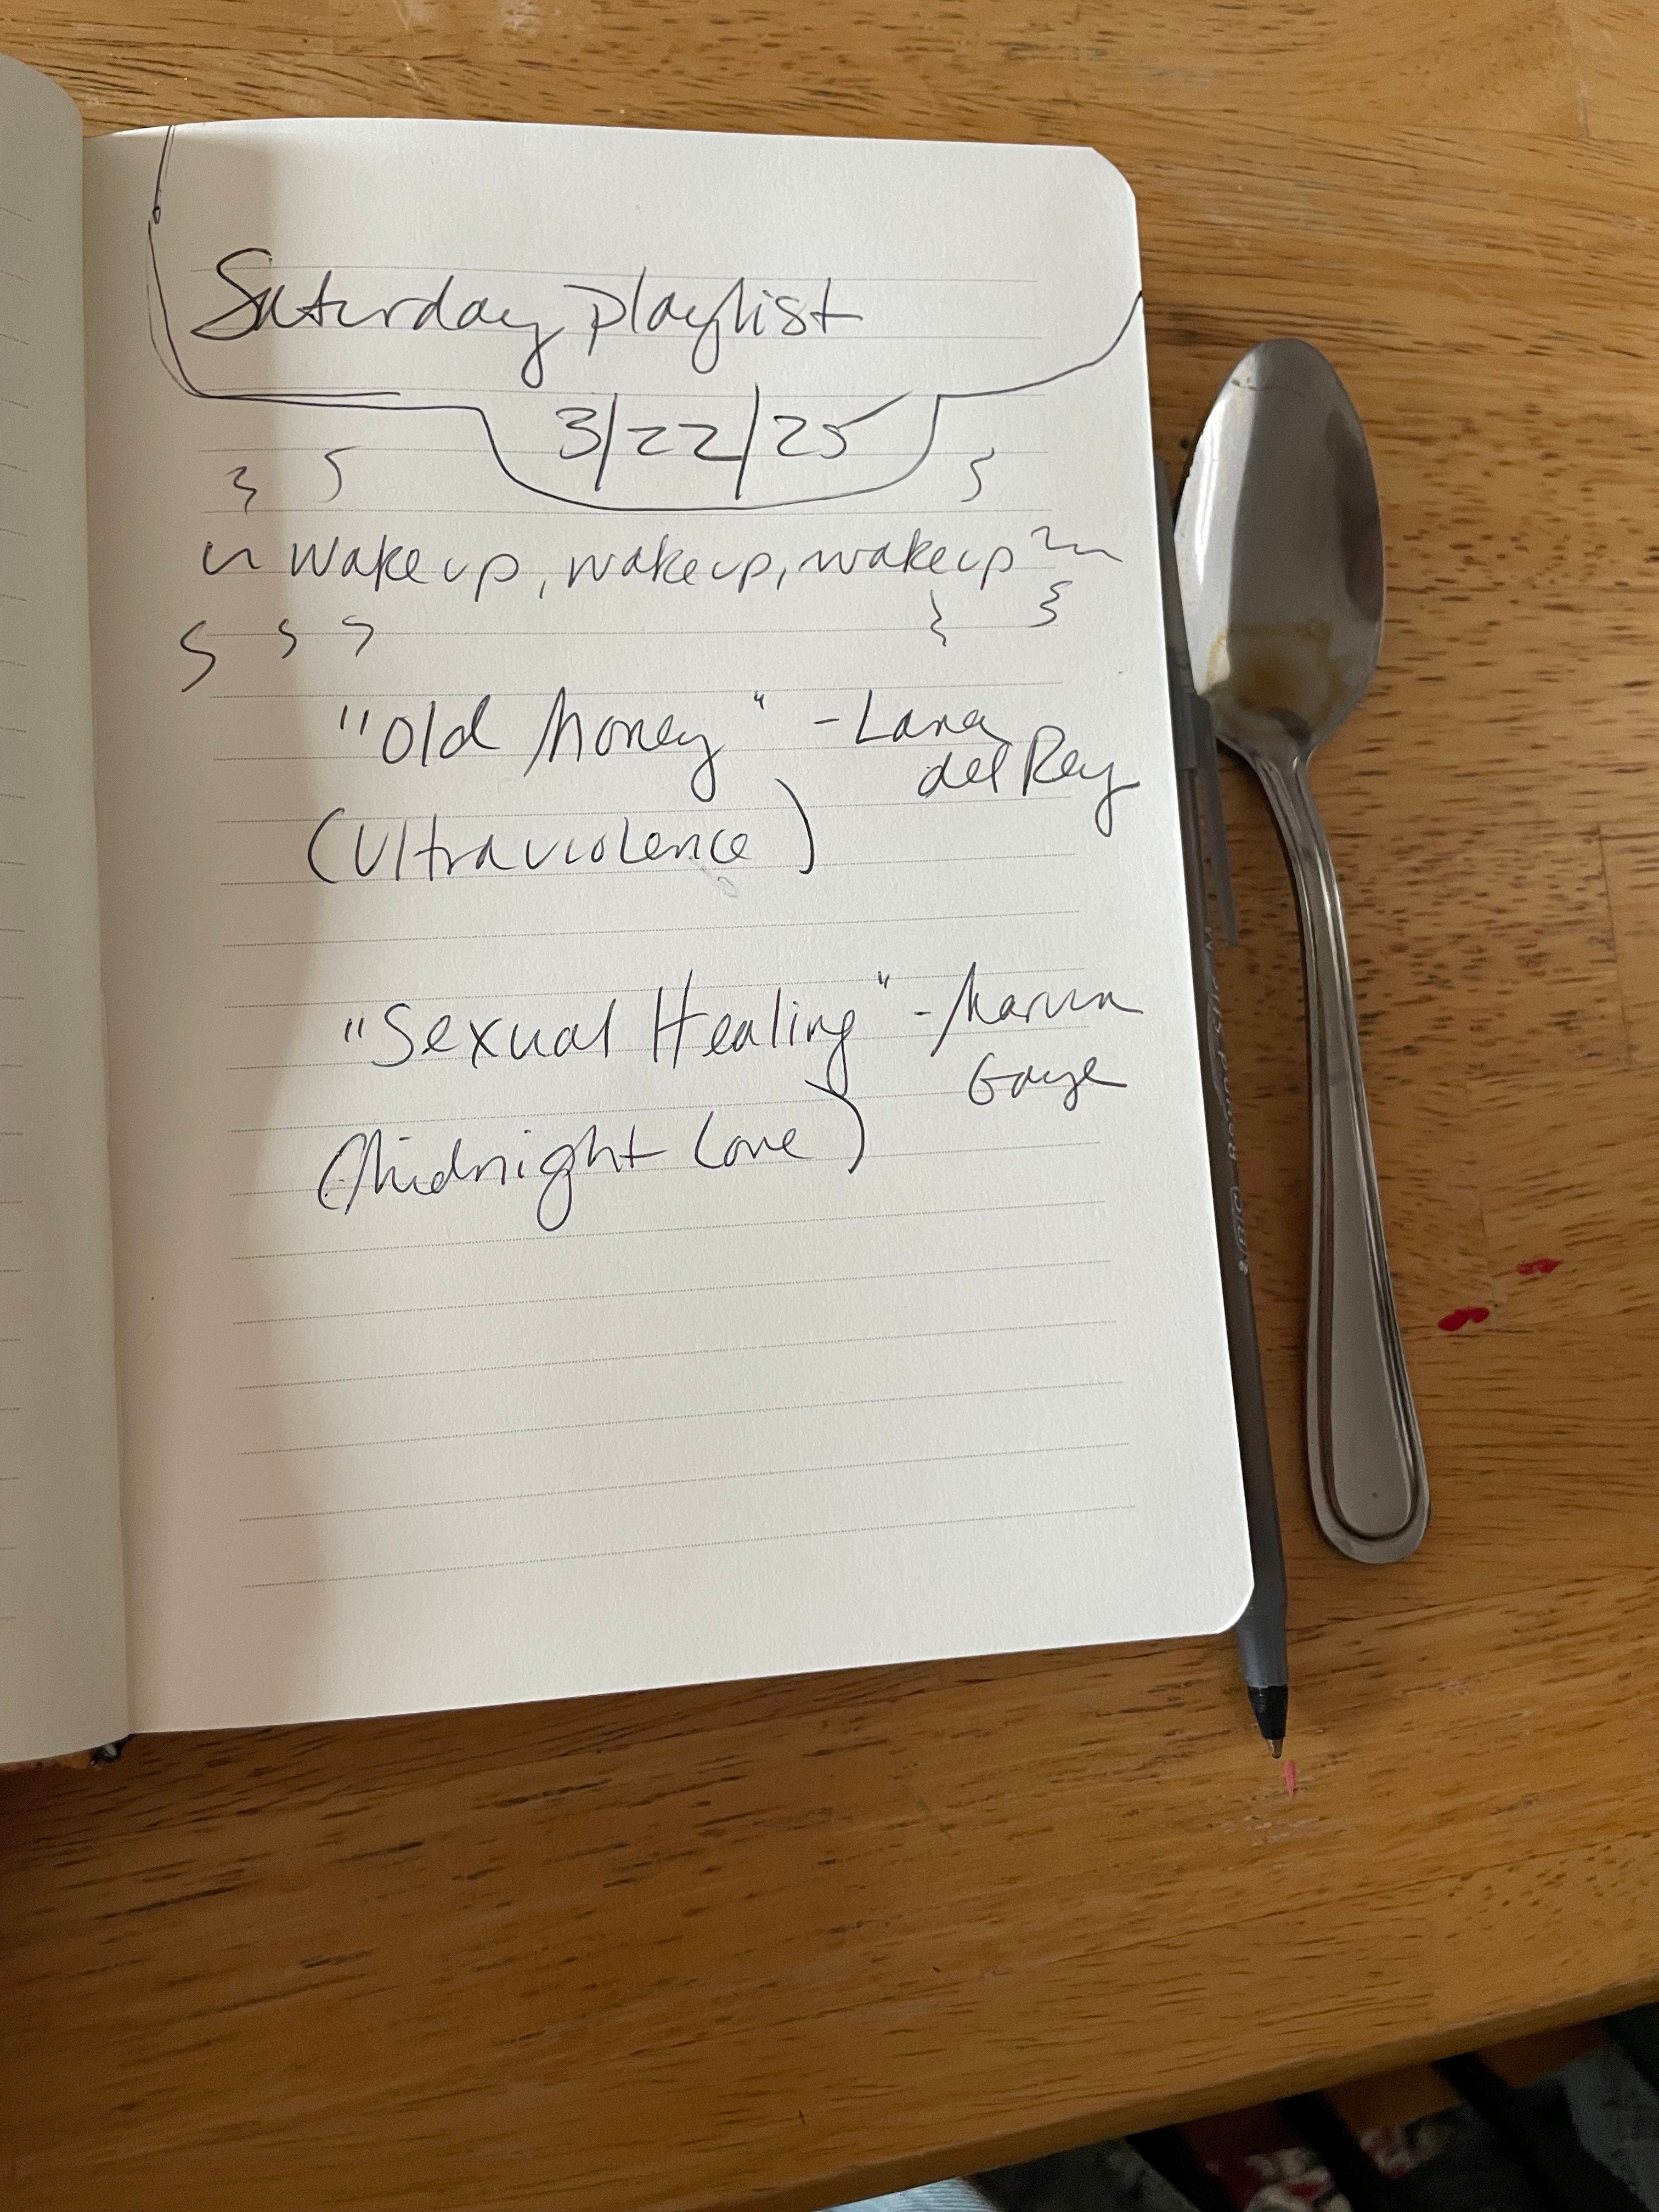 Saturday playlist
3/22/25
wake up, wake up, wake up
"Old Money" - Lana
del Rey
(Ultraviolence)
"Sexual Healing" - Marvin
Gaye
(Midnight Love)
Write Bros.